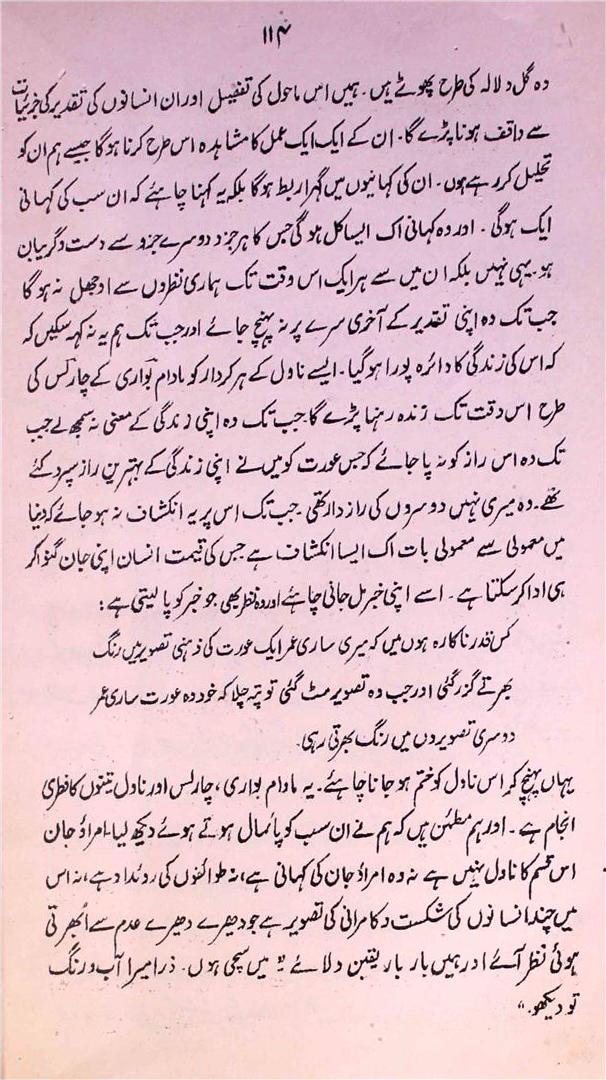 ۱۱۴
وہ گل و لالہ کی طرح پھوٹے ہیں۔ ہمیں اس ماحول کی تفصیل اور ان انسانوں کی تقدیر کی جزئیات
سے واقف ہونا پڑے گا۔ ان کے ایک ایک عمل کا مشاہدہ اس طرح کرنا ہوگا جیسے ہم ان کو
تحلیل کر رہے ہوں۔ ان کی کہانیوں میں گہرا ربط ہوگا بلکہ یہ کہنا چاہئے کہ ان سب کی کہانی
ایک ہوگی۔ اور وہ کہانی اک ایسا کل ہوگی جس کا ہر جزو دوسرے جزو سے دست و گریبان
ہو۔ یہی نہیں بلکہ ان میں سے ہر ایک اس وقت تک ہماری نظروں سے اوجھل نہ ہوگا
جب تک وہ اپنی تقدیر کے آخری سرے پر نہ پہنچ جائے اور جب تک ہم یہ نہ کہہ سکیں کہ
کہ اس کی زندگی کا دائرہ پورا ہوگیا۔ ایسے ناول کے ہر کردار کو مادام بواری کے چارلس کی
طرح اس وقت تک زندہ رہنا پڑے گا جب تک وہ اپنی زندگی کے معنی نہ سمجھ لے جب
تک وہ اس راز کو نہ پا جائے کہ جس عورت کو میں نے اپنی زندگی کے بہترین راز سپرد کئے
تھے۔ وہ میری نہیں دوسروں کی راز دار تھی۔ جب تک اس پر یہ انکشاف نہ ہو جائے کہ دنیا
میں معمولی سے معمولی بات اک ایسا انکشاف ہے جس کی قیمت انسان اپنی جان گنوا کر
ہی ادا کر سکتا ہے۔ اسے اپنی خبر مل جانی چاہئے اور وہ نظر بھی جو خبر کو پا لیتی ہے :
کس قدر ناکارہ ہوں میں کہ میری ساری عمر ایک عورت کی ذہنی تصویر میں رنگ
بھرتے گزر گئی اور جب وہ تصویر مٹ گئی تو پتہ چلا کہ خود وہ عورت ساری عمر
دوسری تصویروں میں رنگ بھرتی رہی۔
یہاں پہنچ کر اس ناول کو ختم ہو جانا چاہئے۔ یہ مادام بواری، چارلس اور ناول تینوں کا فطری
انجام ہے۔ اور ہم مطمئن ہیں کہ ہم نے ان سب کو پائمال ہوتے ہوئے دیکھ لیا۔ امراؤ جان
اس قسم کا ناول نہیں ہے نہ وہ امراؤ جان کی کہانی ہے، نہ طوائفوں کی روئداد ہے، نہ اس
میں چند انسانوں کی شکست و کامرانی کی تصویر ہے جو دھیرے دھیرے عدم سے ابھرتی
ہوئی نظر آئے اور ہمیں بار بار یقین دلائے "میں سچی ہوں۔ ذرا میرا آب و رنگ
تو دیکھو۔"